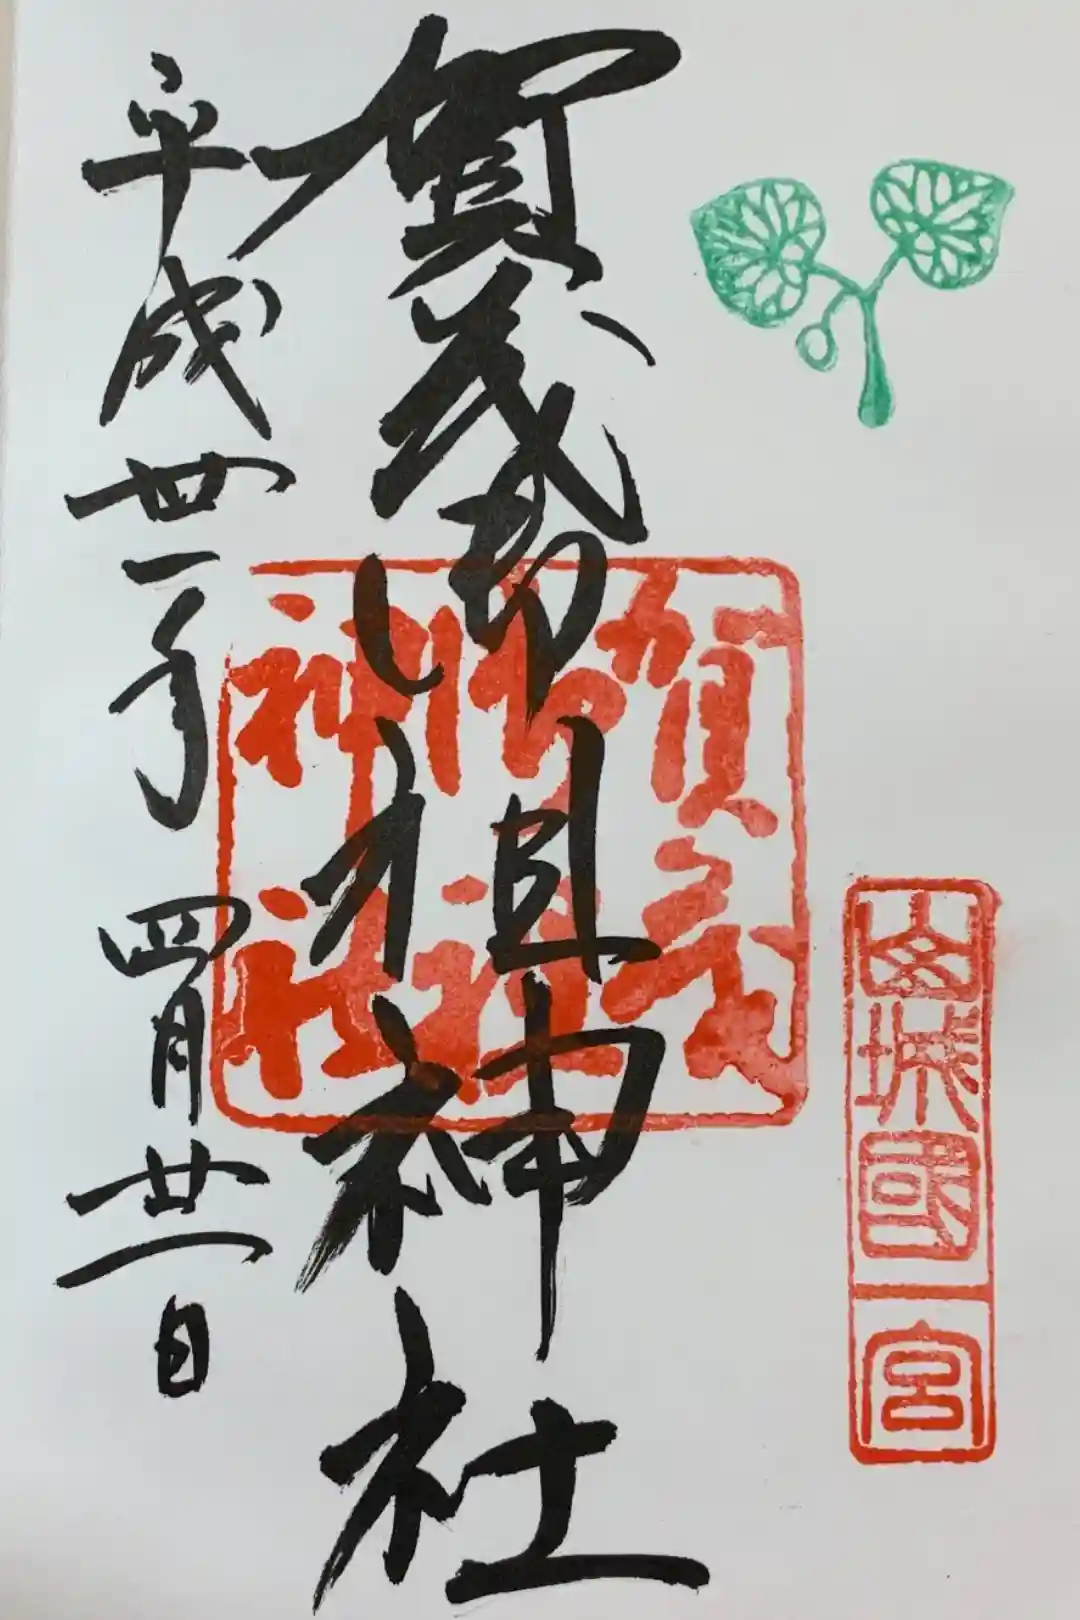 山城國一宮
賀茂御祖神社
賀茂
御祖
神社
平成卅一年四月廿一日